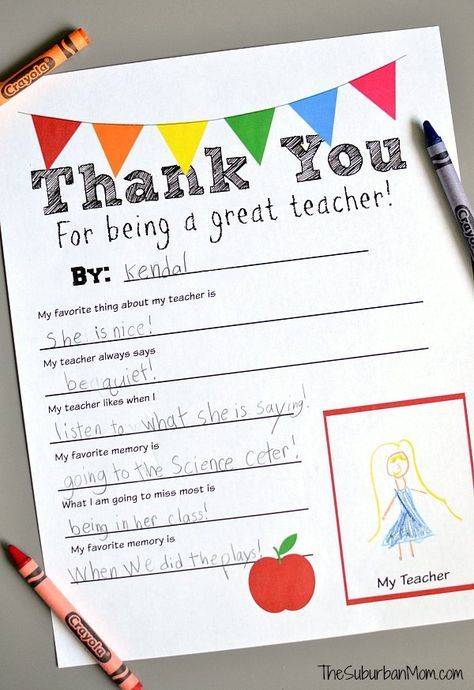 Crayola
Thank You
For being a great teacher!
By: Kendal
Crayola
My favorite thing about my teacher is
She is nice!
My teacher always says
be quiet!
My teacher likes when I
listen to what she is saying!
My favorite memory is
going to the Science ceter!
What I am going to miss most is
being in her class!
My favorite memory is
When We did the plays!
My Teacher
Crayola
TheSuburbanMom.com